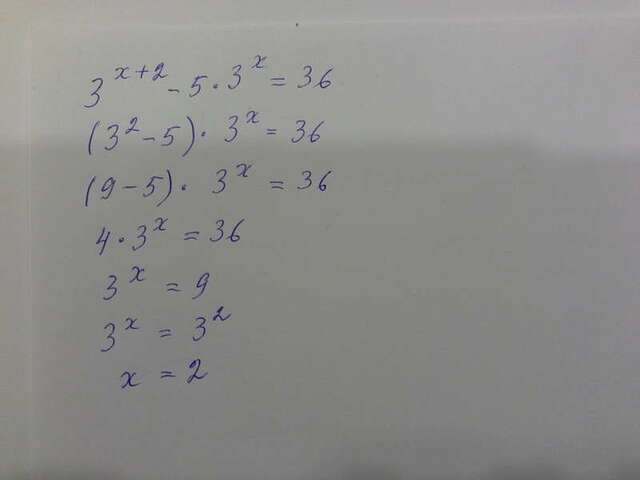 3^{x+2} - 5 · 3^x = 36
(3^2 - 5) · 3^x = 36
(9 - 5) · 3^x = 36
4 · 3^x = 36
3^x = 9
3^x = 3^2
x = 2